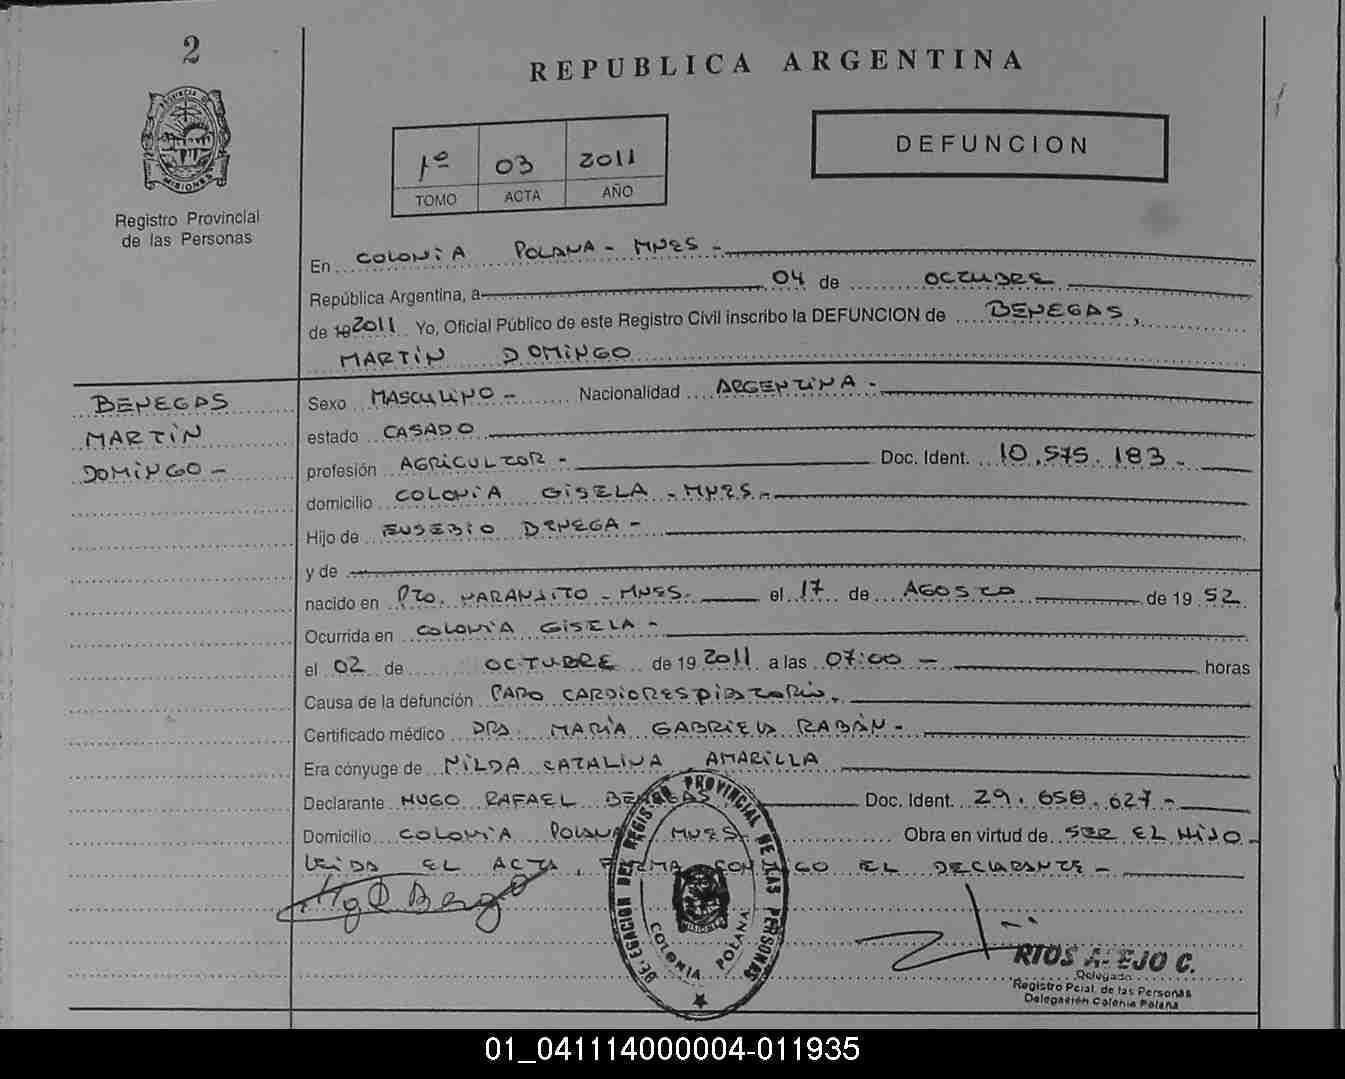 2
REPUBLICA ARGENTINA
1º 03 2011
TOMO ACTA AÑO
DEFUNCION
PROVINCIA DE
MISIONES
Registro Provincial
de las Personas
En COLONIA POLANA - MNES -
República Argentina, a 04 de OCTUBRE
de 19 2011 Yo, Oficial Público de este Registro Civil inscribo la DEFUNCION de BENEGAS,
MARTIN DOMINGO
BENEGAS
MARTIN
DOMINGO -
Sexo MASCULINO - Nacionalidad ARGENTINA -
estado CASADO
profesión AGRICULTOR - Doc. Ident. 10.575.183 -
domicilio COLONIA GISELA - MNES -
Hijo de EUSEBIO BENEGA -
y de
nacido en PTO. NARANJITO - MNES. el 17 de AGOSTO de 19 52
Ocurrida en COLONIA GISELA -
el 02 de OCTUBRE de 19 2011 a las 07:00 - horas
Causa de la defunción PARO CARDIORESPIRATORIO.
Certificado médico DRA. MARIA GABRIELA RABÁN -
Era cónyuge de NILDA CATALINA AMARILLA
Declarante HUGO RAFAEL BENEGAS Doc. Ident. 29.658.627 -
Domicilio COLONIA POLANA MNES Obra en virtud de SER EL HIJO -
LEIDA EL ACTA, FIRMA CONMIGO EL DECLARANTE -
DELEGACION DEL REGISTRO PROVINCIAL DE LAS PERSONAS
COLONIA POLANA
RIOS ALEJO C.
Delegado
Registro Pcial. de las Personas
Delegación Colonia Polana
01_041114000004-011935